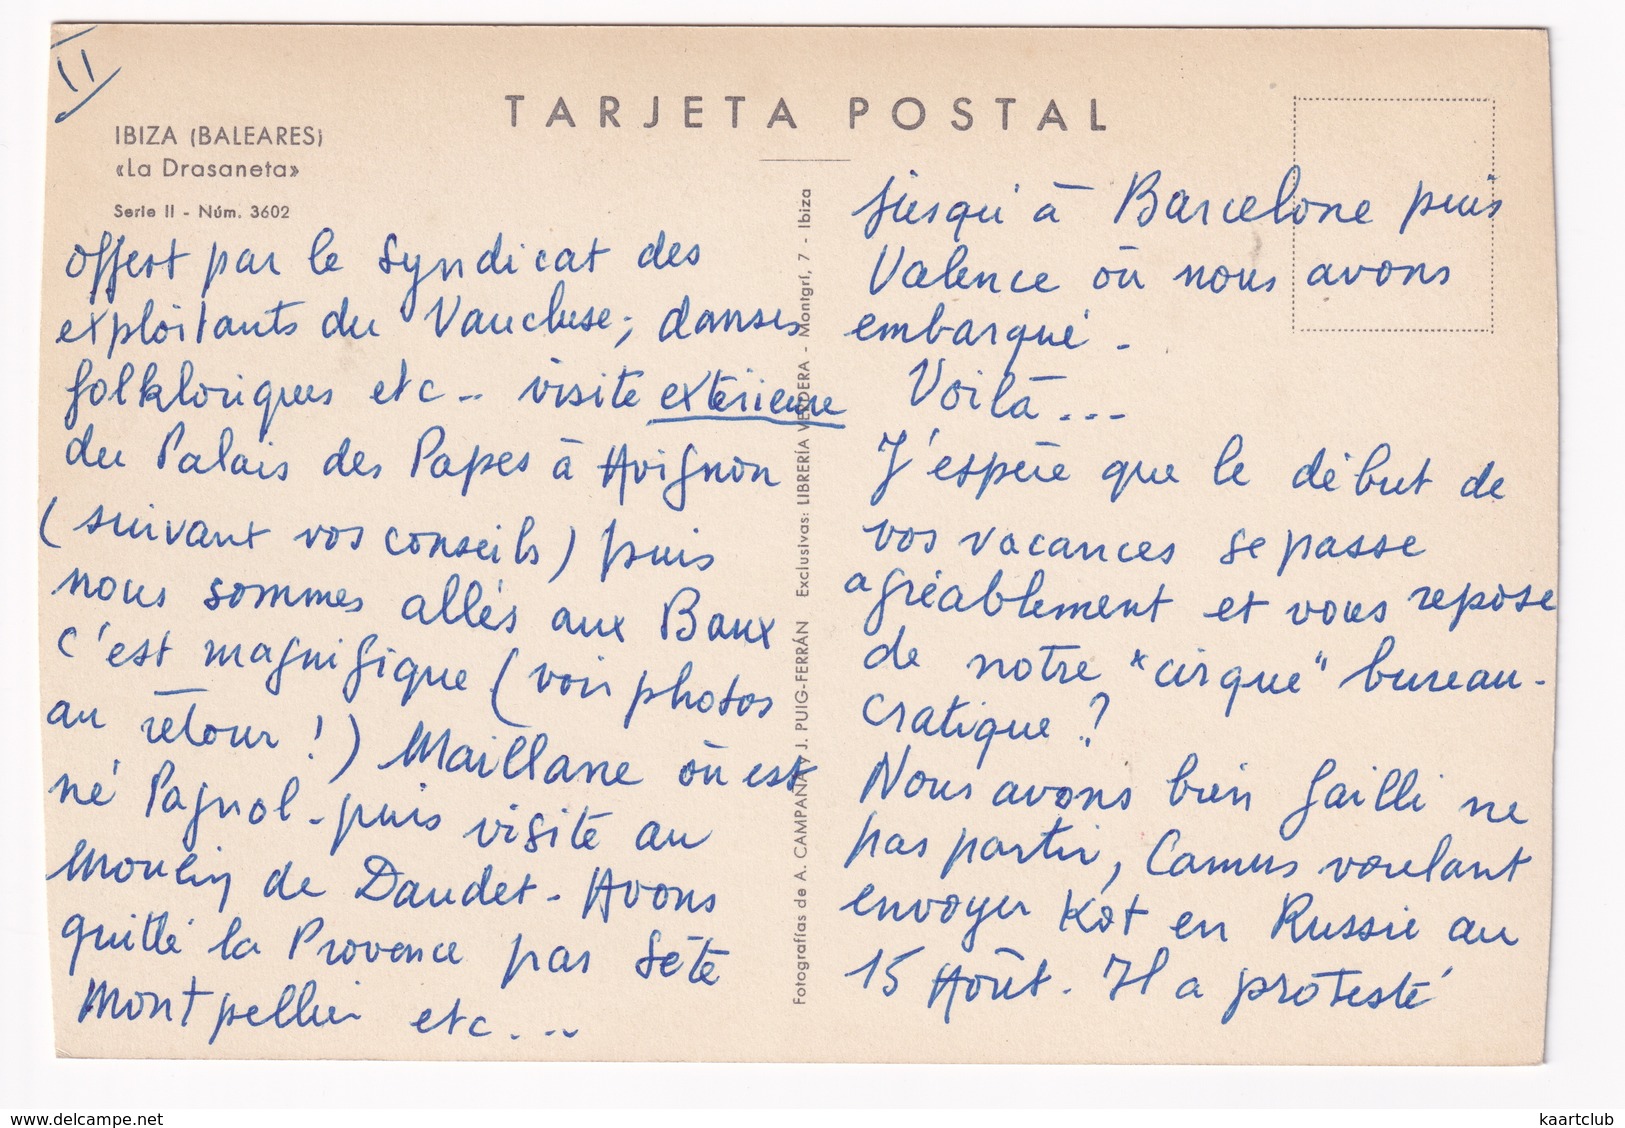 II
TARJETA POSTAL
IBIZA (BALEARES)
«La Drasaneta»
Serie II - Núm. 3602
offert par le Syndicat des
exploitants du Vaucluse; danses
folkloriques etc.. visite extérieure
du Palais des Papes à Avignon
(suivant vos conseils) puis
nous sommes allés aux Baux
c'est magnifique (voir photos
au retour!) Maillane où est
né Pagnol - puis visite au
Moulin de Daudet - Avons
quitté la Provence par Sète
Montpellier etc...
Fotografías de A. CAMPANA y J. PUIG-FERRÁN Exclusivas: LIBRERÍA VERDERA - Montgrí, 7 - Ibiza
jusqu'à Barcelone puis
Valence où nous avons
embarqué -
Voilà...
J'espère que le début de
vos vacances se passe
agréablement et vous repose
de notre "cirque" bureau-
cratique?
Nous avons bien failli ne
pas partir, Camus voulant
envoyer Kot en Russie au
15 Août. Il a protesté
www.delcampe.net
kaartclub